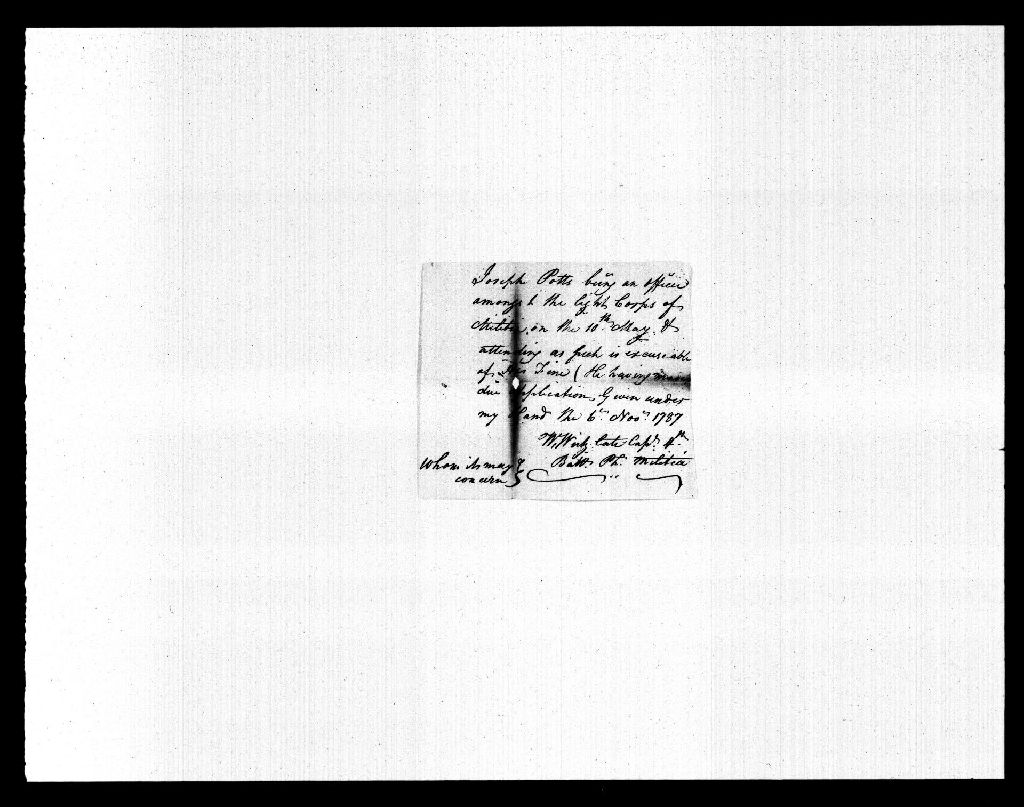 Joseph Potts being an officer
amongst the light Corps of
Militia, on the 10th. May &
attending as such is excuseable
of His Fine (He having made
due application, Given under
my Hand the 6th Nov.r 1787
Wm Wirtz late Capt. 4th.
Batt.n Ph.a Militia
Whom its may
concern